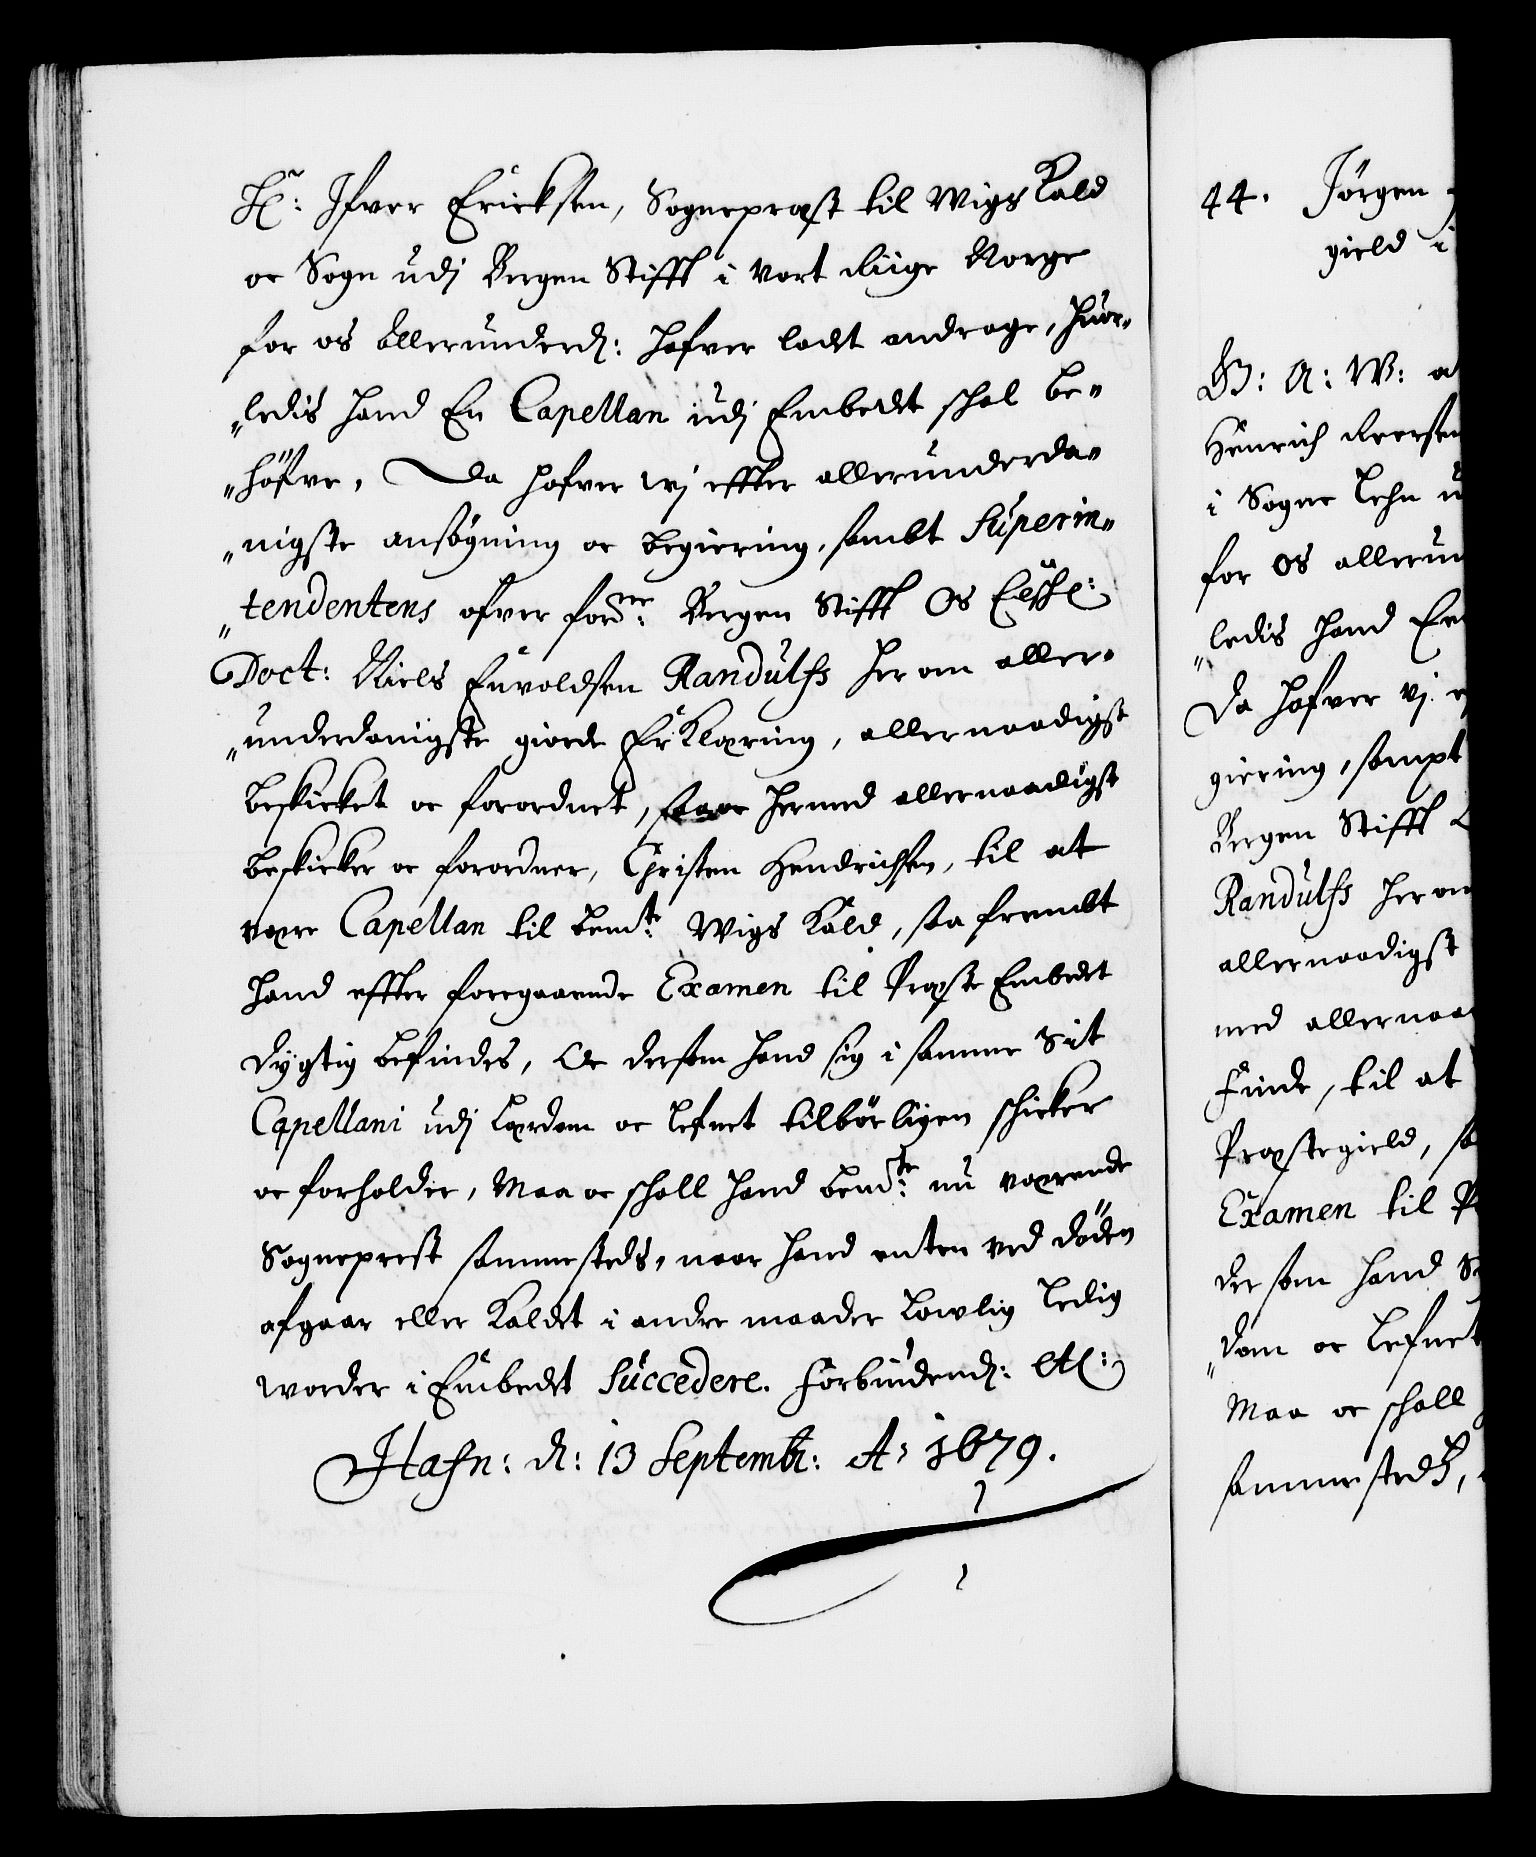 Hr: Ifver Ericksen, Sognepræst til Wigs Kald
oc Sogn udj Bergen Stifft i Vort Riige Norge
for os Allerunderd: hafver ladet andrage, huor„
„ledis hand En Capellan udj Embedet schal be„
„höfve, Da hafver wj effter allerunderda„
„nigste ansögning oc begiering, sambt Superin„
„tendentens ofver for.ne: Bergen Stifft Os Elschel:
Doct: Niels Envoldsen Randulfs her om aller„
„underdanigste giorde Erklæring, allernaadigst
beskicket oc forordnet, saa oc hermed allernaadigst
beskicker oc forordner, Christen Hendrichsen, til at
være Capellan til bem.te: Wigs Kald, saa frembt
hand effter foregaaende Examen til Præste Embedet
dygtig befindes, Oc dersom hand sig i samme Sit
Capellani udj Lærdom oc Lefnet tilbörligen schicker
oc forholder, Maa oc schall hand bem.te: nu værende
Sogneprest sammesteds, naar hand enten ved döden
afgaar eller Kaldet i andre maader Lowlig Ledig
worder i Embedet Succedere. Forbiudend: Etc:
Hafn: d: 13 Septembr: A: 1679.
44. Jörgen
gield i
G: A: W: a
Henrich Iversen
i Sogne Lehn u
for os allerun
„ledis hand En
Da hafver vj e
giering, sampt
Bergen Stifft
Randulfs her om
allernaadigst
med allernaa
Finde, til at
Præstegield, sa
Examen til P
der som hand S
„dom oc Lefnet
Maa oc schall
sammesteds,